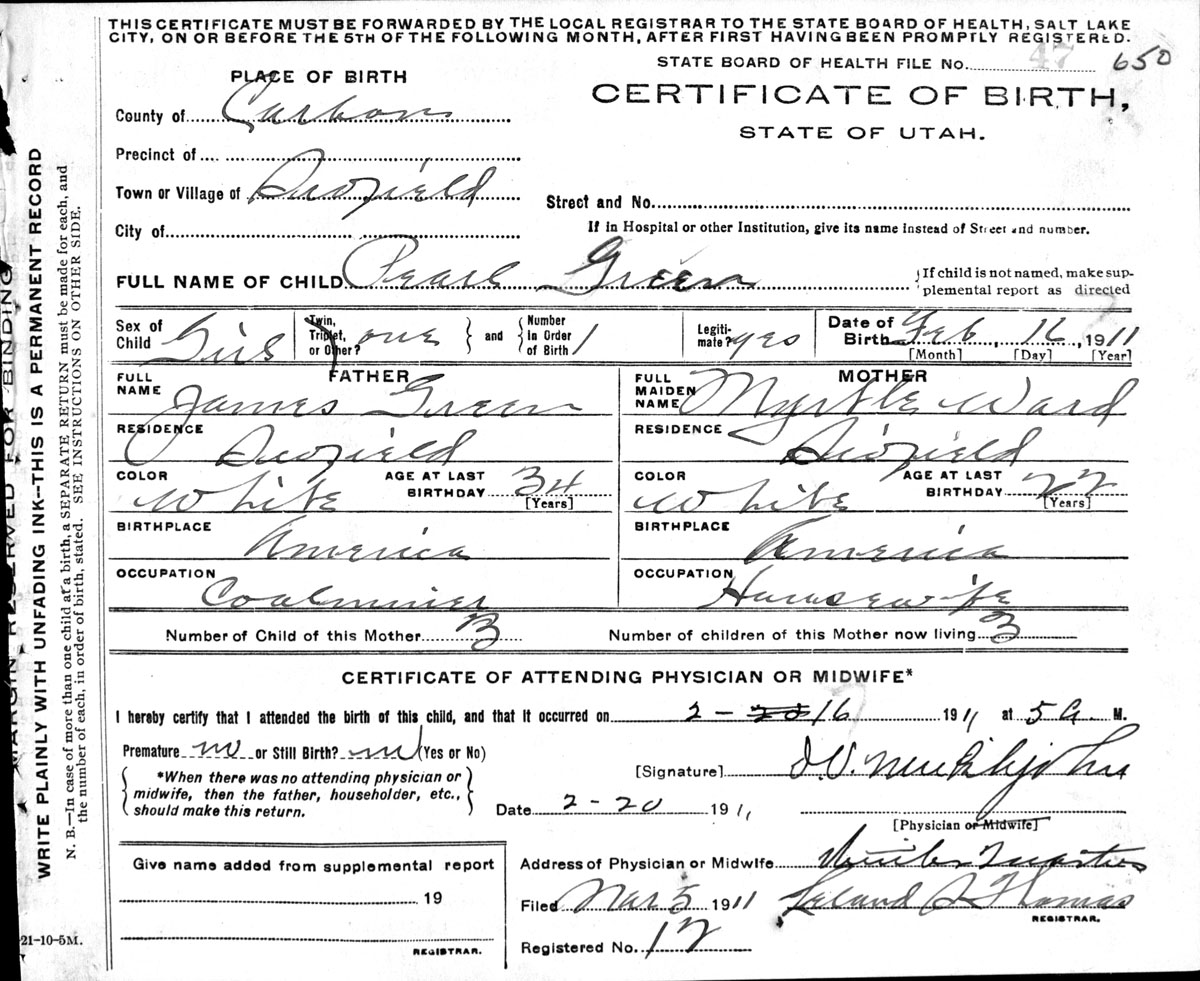 THIS CERTIFICATE MUST BE FORWARDED BY THE LOCAL REGISTRAR TO THE STATE BOARD OF HEALTH, SALT LAKE
CITY, ON OR BEFORE THE 5TH OF THE FOLLOWING MONTH, AFTER FIRST HAVING BEEN PROMPTLY REGISTERED.
STATE BOARD OF HEALTH FILE No. 47 650
PLACE OF BIRTH
CERTIFICATE OF BIRTH,
STATE OF UTAH.
County of Carbon
Precinct of
Town or Village of
Street and No.
City of
If in Hospital or other Institution, give its name instead of Street and number.
FULL NAME OF CHILD Pearl Green
{If child is not named, make sup-
plemental report as directed
Sex of Child Girl
Twin, Triplet, or Other? one } and { Number in Order of Birth 1
Legiti-mate? yes
Date of Birth Feb, 16, 1911
[Month] [Day] [Year]
FATHER
FULL NAME James Green
MOTHER
FULL MAIDEN NAME Myrtle Ward
RESIDENCE
RESIDENCE
COLOR White AGE AT LAST BIRTHDAY 34 [Years]
COLOR White AGE AT LAST BIRTHDAY 22 [Years]
BIRTHPLACE America
BIRTHPLACE America
OCCUPATION Coalminer
OCCUPATION Housewife
Number of Child of this Mother 3
Number of children of this Mother now living 3
CERTIFICATE OF ATTENDING PHYSICIAN OR MIDWIFE*
I hereby certify that I attended the birth of this child, and that it occurred on 2 - 20 16 1911 at 5 A. M.
Premature no or Still Birth? no (Yes or No)
{ *When there was no attending physician or
midwife, then the father, householder, etc.,
should make this return. }
[Signature]
Date 2-20 1911
[Physician or Midwife]
Give name added from supplemental report
19
REGISTRAR.
Address of Physician or Midwife Winter Quarters
Filed Mar 5 1911 Leland S Thomas
REGISTRAR.
Registered No. 12
21-10-5M.
MARGIN RESERVED FOR BINDING
WRITE PLAINLY WITH UNFADING INK--THIS IS A PERMANENT RECORD
N. B.—In case of more than one child at a birth, a SEPARATE RETURN must be made for each, and
the number of each, in order of birth, stated. SEE INSTRUCTIONS ON OTHER SIDE.